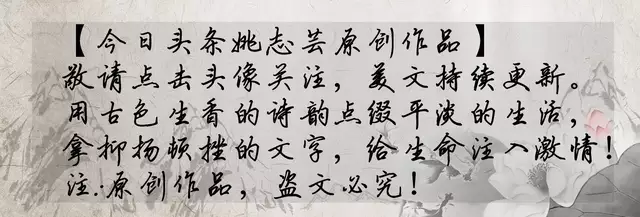 【今日头条姚志芸原创作品】
敬请点击头像关注，美文持续更新。
用古色生香的诗韵点缀平淡的生活，
拿抑扬顿挫的文字，给生命注入激情！
注：原创作品，盗文必究！